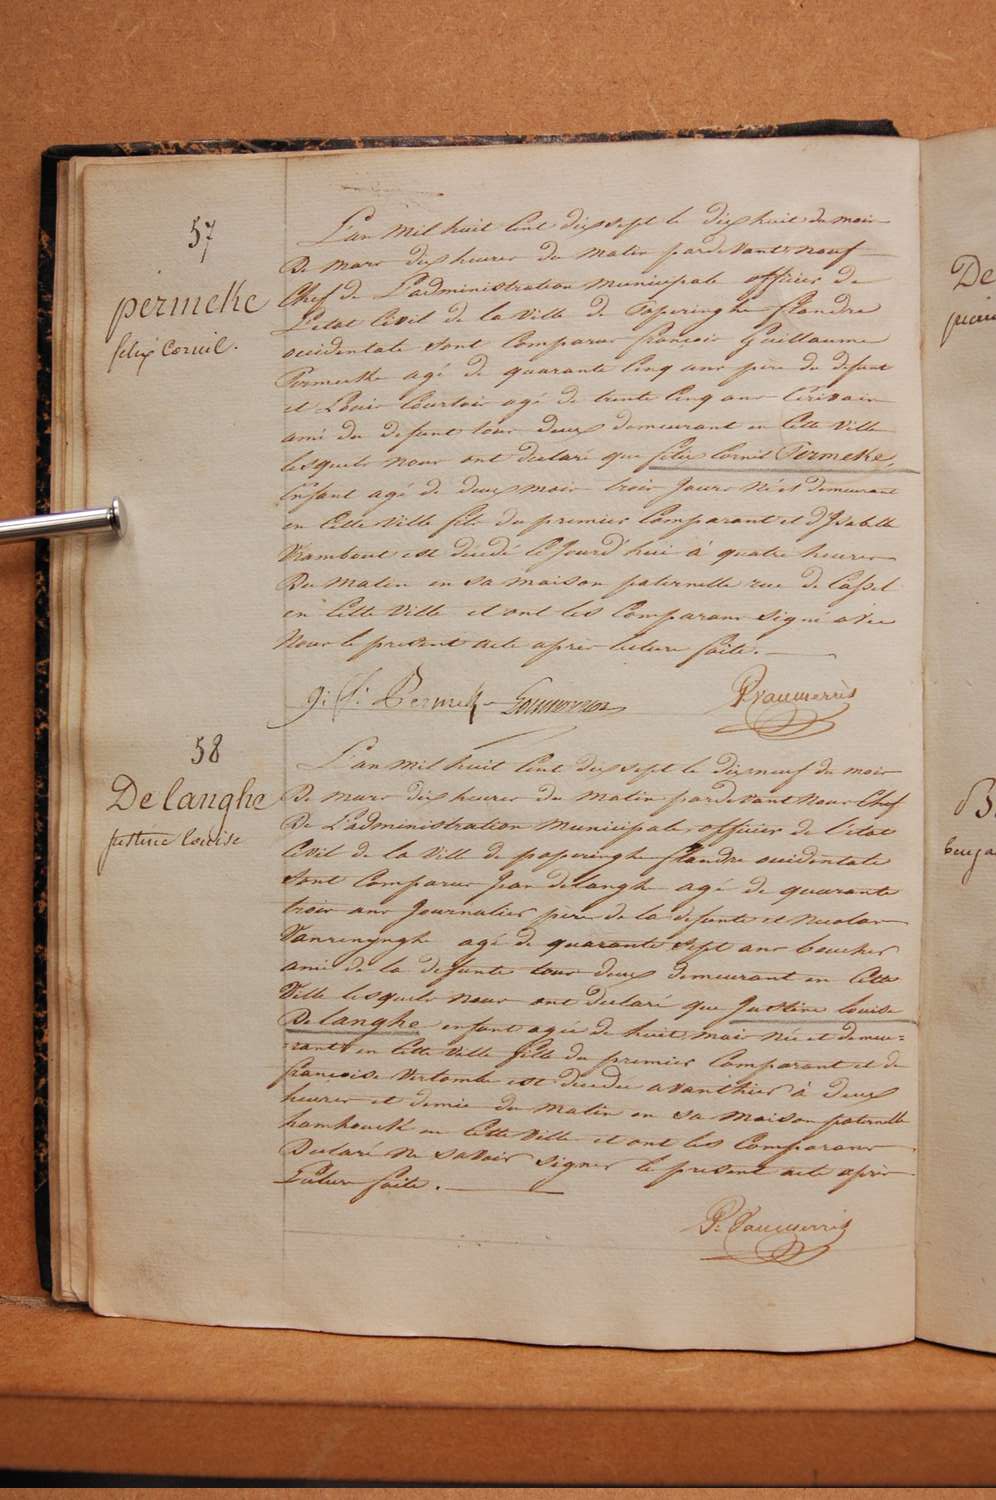 57
permeke
felix Corneil.
L'an Mil huit Cent dix sept le dix huit du mois
De mars dix heures du Matin pardevant nous
Chef de L'administration Municipale officier de
L'etat Civil de la Ville de Poperinghe flandre
occidentale sont Comparus françois Guillaume
Permeke agé de quarante Cinq ans pere du defunt
et Louis Courtois agé de trente Cinq ans Ecrivain
ami du defunt tous deux demeurant en Cette Ville
lesquels nous ont declaré que felix Cornil Permeke,
Enfant agé de deux mois trois Jours Né et demeurant
en Cette Ville fils du premier Comparant et d'Isabelle
est décédé Cejourd'hui à quatre heures
Du Matin en sa maison paternelle rue de Cassel
en Cette Ville et ont les Comparans signé avec
Nous le present acte après lecture faite.
g: f: Permeke
58
De langhe
justine louise
L'an Mil huit Cent dix sept le dix neuf du mois
De mars dix heures du Matin pardevant Nous Chef
De L'administration Municipale, officier de l'etat
Civil de la Ville de poperinghe flandre occidentale
sont Comparus Jean delangh agé de quarante
trois ans Journalier père de la defunte et Nicolas
Vanrenynghe agé de quarante sept ans boucher
ami de la defunte tous deux demeurant en Cette
Ville lesquels nous ont declaré que Justine louise
De langhe enfant agée de huit mois Née et demeu=
=rant en Cette Ville fille du premier Comparant et de
françoise est decedée avanthier à deux
heures et demie du Matin en sa Maison paternelle
en Cette Ville et ont les Comparans
Declaré Ne savoir signer le present acte après
Lecture faite.
De
B